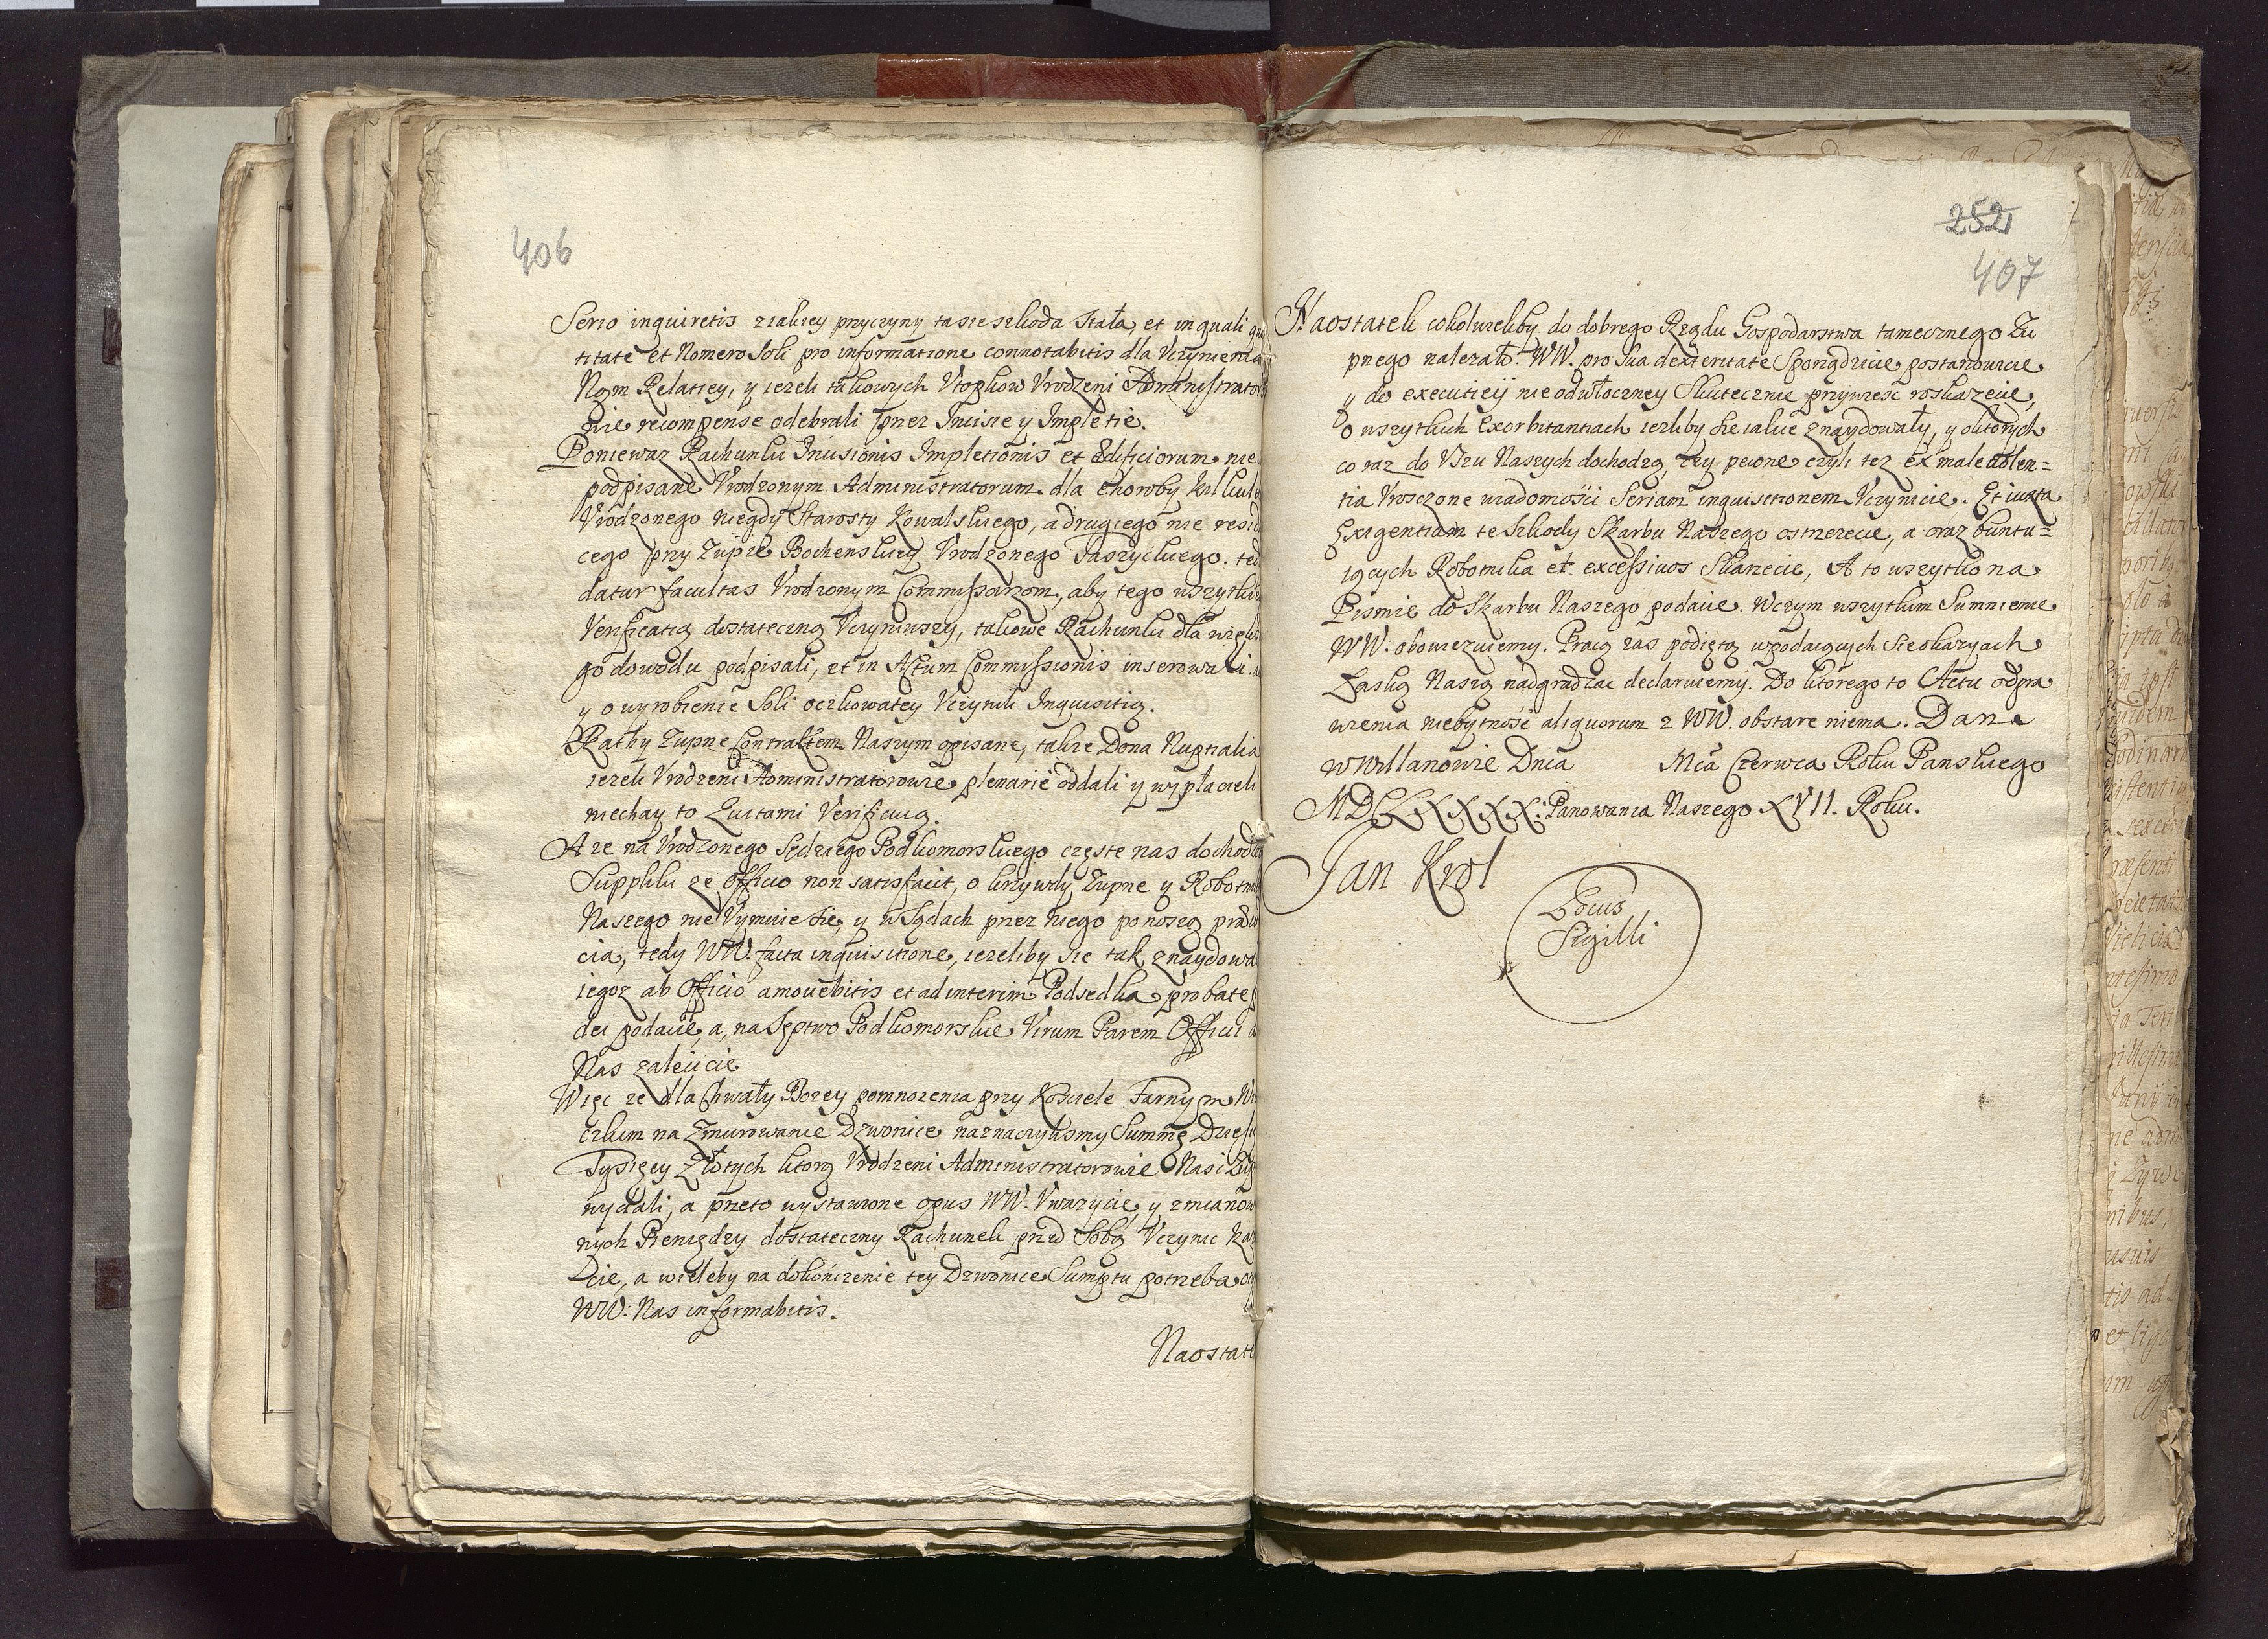 406
Serio inquiretis z iakiey przyczyny ta sie szkoda stała, et in quali qu
titate et Nomero Soli pro informatione connotabitis dla Vczynienia
Nam Relatiey, y ieżeli takowych Vtopkow Vrodzeni Administrato
nie recompense odebrali przez Incisie y Impletie.
Poniewaz Rachunku Incisionis Impletionis et Edificiorum nie
podpisane Vrodzonym Administratorum dla choroby
Vrodzonego niegdy Starosty Kowalskiego, a drugiego nie resid
cego przy Zupie Bochenskiey Vrodzonego Taszyckiego. ted
datur facultas Vrodzonym Commissarzom, aby tego wszytkie
Verificatią dostateczną Vczyniwszy, takowe Rachunki dla więks
go dowodu podpisali, et in Actum Commissionis inserowali.
y o wyrobienie Soli oczkowatey Vczynili Inquisitią.
Rathy Zupne Contraktem Naszym opisane, także Dona Nuptialia
ieżeli Vrodzeni Administratorowie plenarie oddali y wypłacieli
niechay to kwitami Verificuią.
A ze na Vrodzonego Sędziego Podkomorskiego częste nas dochodz
Suppliki ze Officio non satisfacit, o krzywdy Zupne y Robotni
Naszego nie Vymuie sie, y w Sądach przez niego ponoszą praeiu
cia, tedy WW. facta inquisitione, ieżeliby sie tak znaydowa
iegoz ab Officio amouebitis et ad interim Podsedka probatę
dei podacie, a, na Sęstwo Podkomorskie Virum Parem Officii
Nas zalecicie
Więc ze dla Chwały Bozey pomnozenia przy Kosciele Farnym Wi
czkim na Zmurowanie Dzwonice naznaczylismy Summę Dziesi
Tysięcy Złotych ktorą Vrodzeni Administratorowie Nasi Zup
wydali, a przeto wystawione opus WW. Vwazycie, y zmianow
nych Pieniędzy dostateczny Rachunek przed Sobą Vczynic Kaz
cie, a wieleby na dokończenie tey Dzwonice Sumptu potrzeba
WW: Nas informabitis.
Naostate
252
407
Naostatek cokolwiekby do dobrego Rządu Gospodarstwa tamecznego Zu
pnego nalezało. WW. pro sua dexteritate Sporządzicie postanowicie
y do executiey nieodwłoczney Skutecznie przywieść roskazecie,
o wszytkich Exorbitantiach iezliby sie iakie znaydowały, y o ktorych
co raz do Vszu Naszych dochodzą, czy pewne czyli tez ex maleuolen=
tia Vrosczone wiadomości Seriam inquisitionem Vczynicie. Et iuxta
Exigentiam te Szkody Skarbu Naszego ostrzezecie, a oraz buntu=
iących Robotnika et excessiuos Skarzecie, A to wszytko na
Pismie do Skarbu Naszego podacie. W czym wszytkim Sumnienie
WW: obowiezuiemy. Pracą zas podiętą w podaiących sie okazyach
Łaską Naszą nadgradzac declaruiemy. Do ktorego to Actu odpra
wienia niebytność aliquorum z WW. obstare niema. Dan
w Willanowie Dnia Mca Czerwca Roku Panskiego
MDCLXXXX: Panowania Naszego XVII. Roku.
Jan Krol
Locus
Sigilli